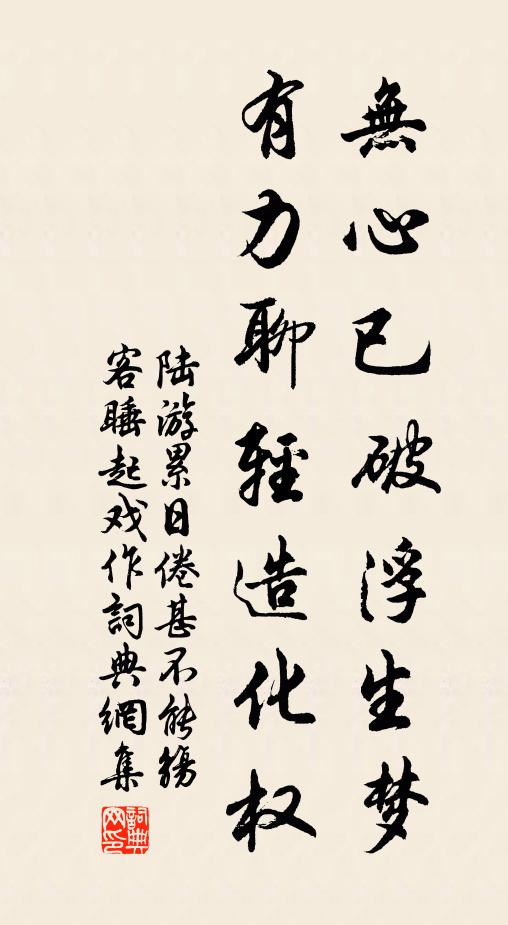 無心已破浮生梦
有力聊輕造化权
陆游累日倦甚不能觞
客睡起戏作詞典網集
詞典网印